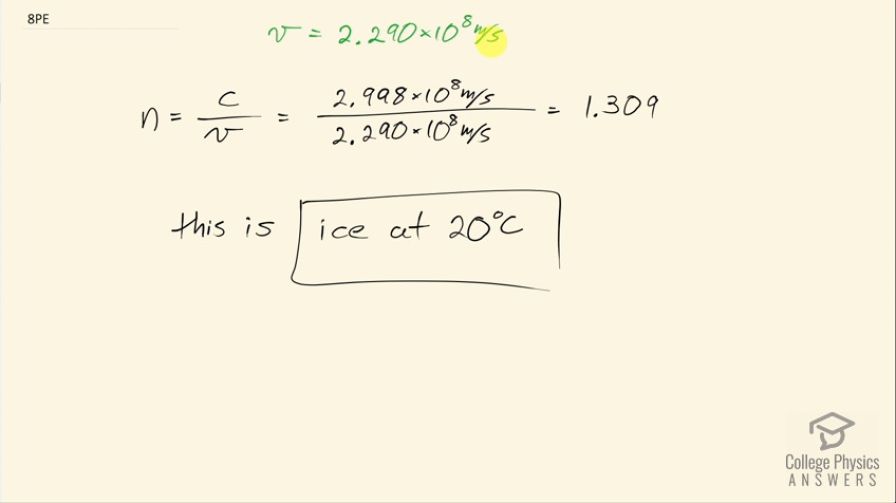 8PE
v = 2.290×10⁸ m/s
n = c/v = 2.998×10⁸ m/s / 2.290×10⁸ m/s = 1.309
this is ice at 20°C
College Physics
ANSWERS